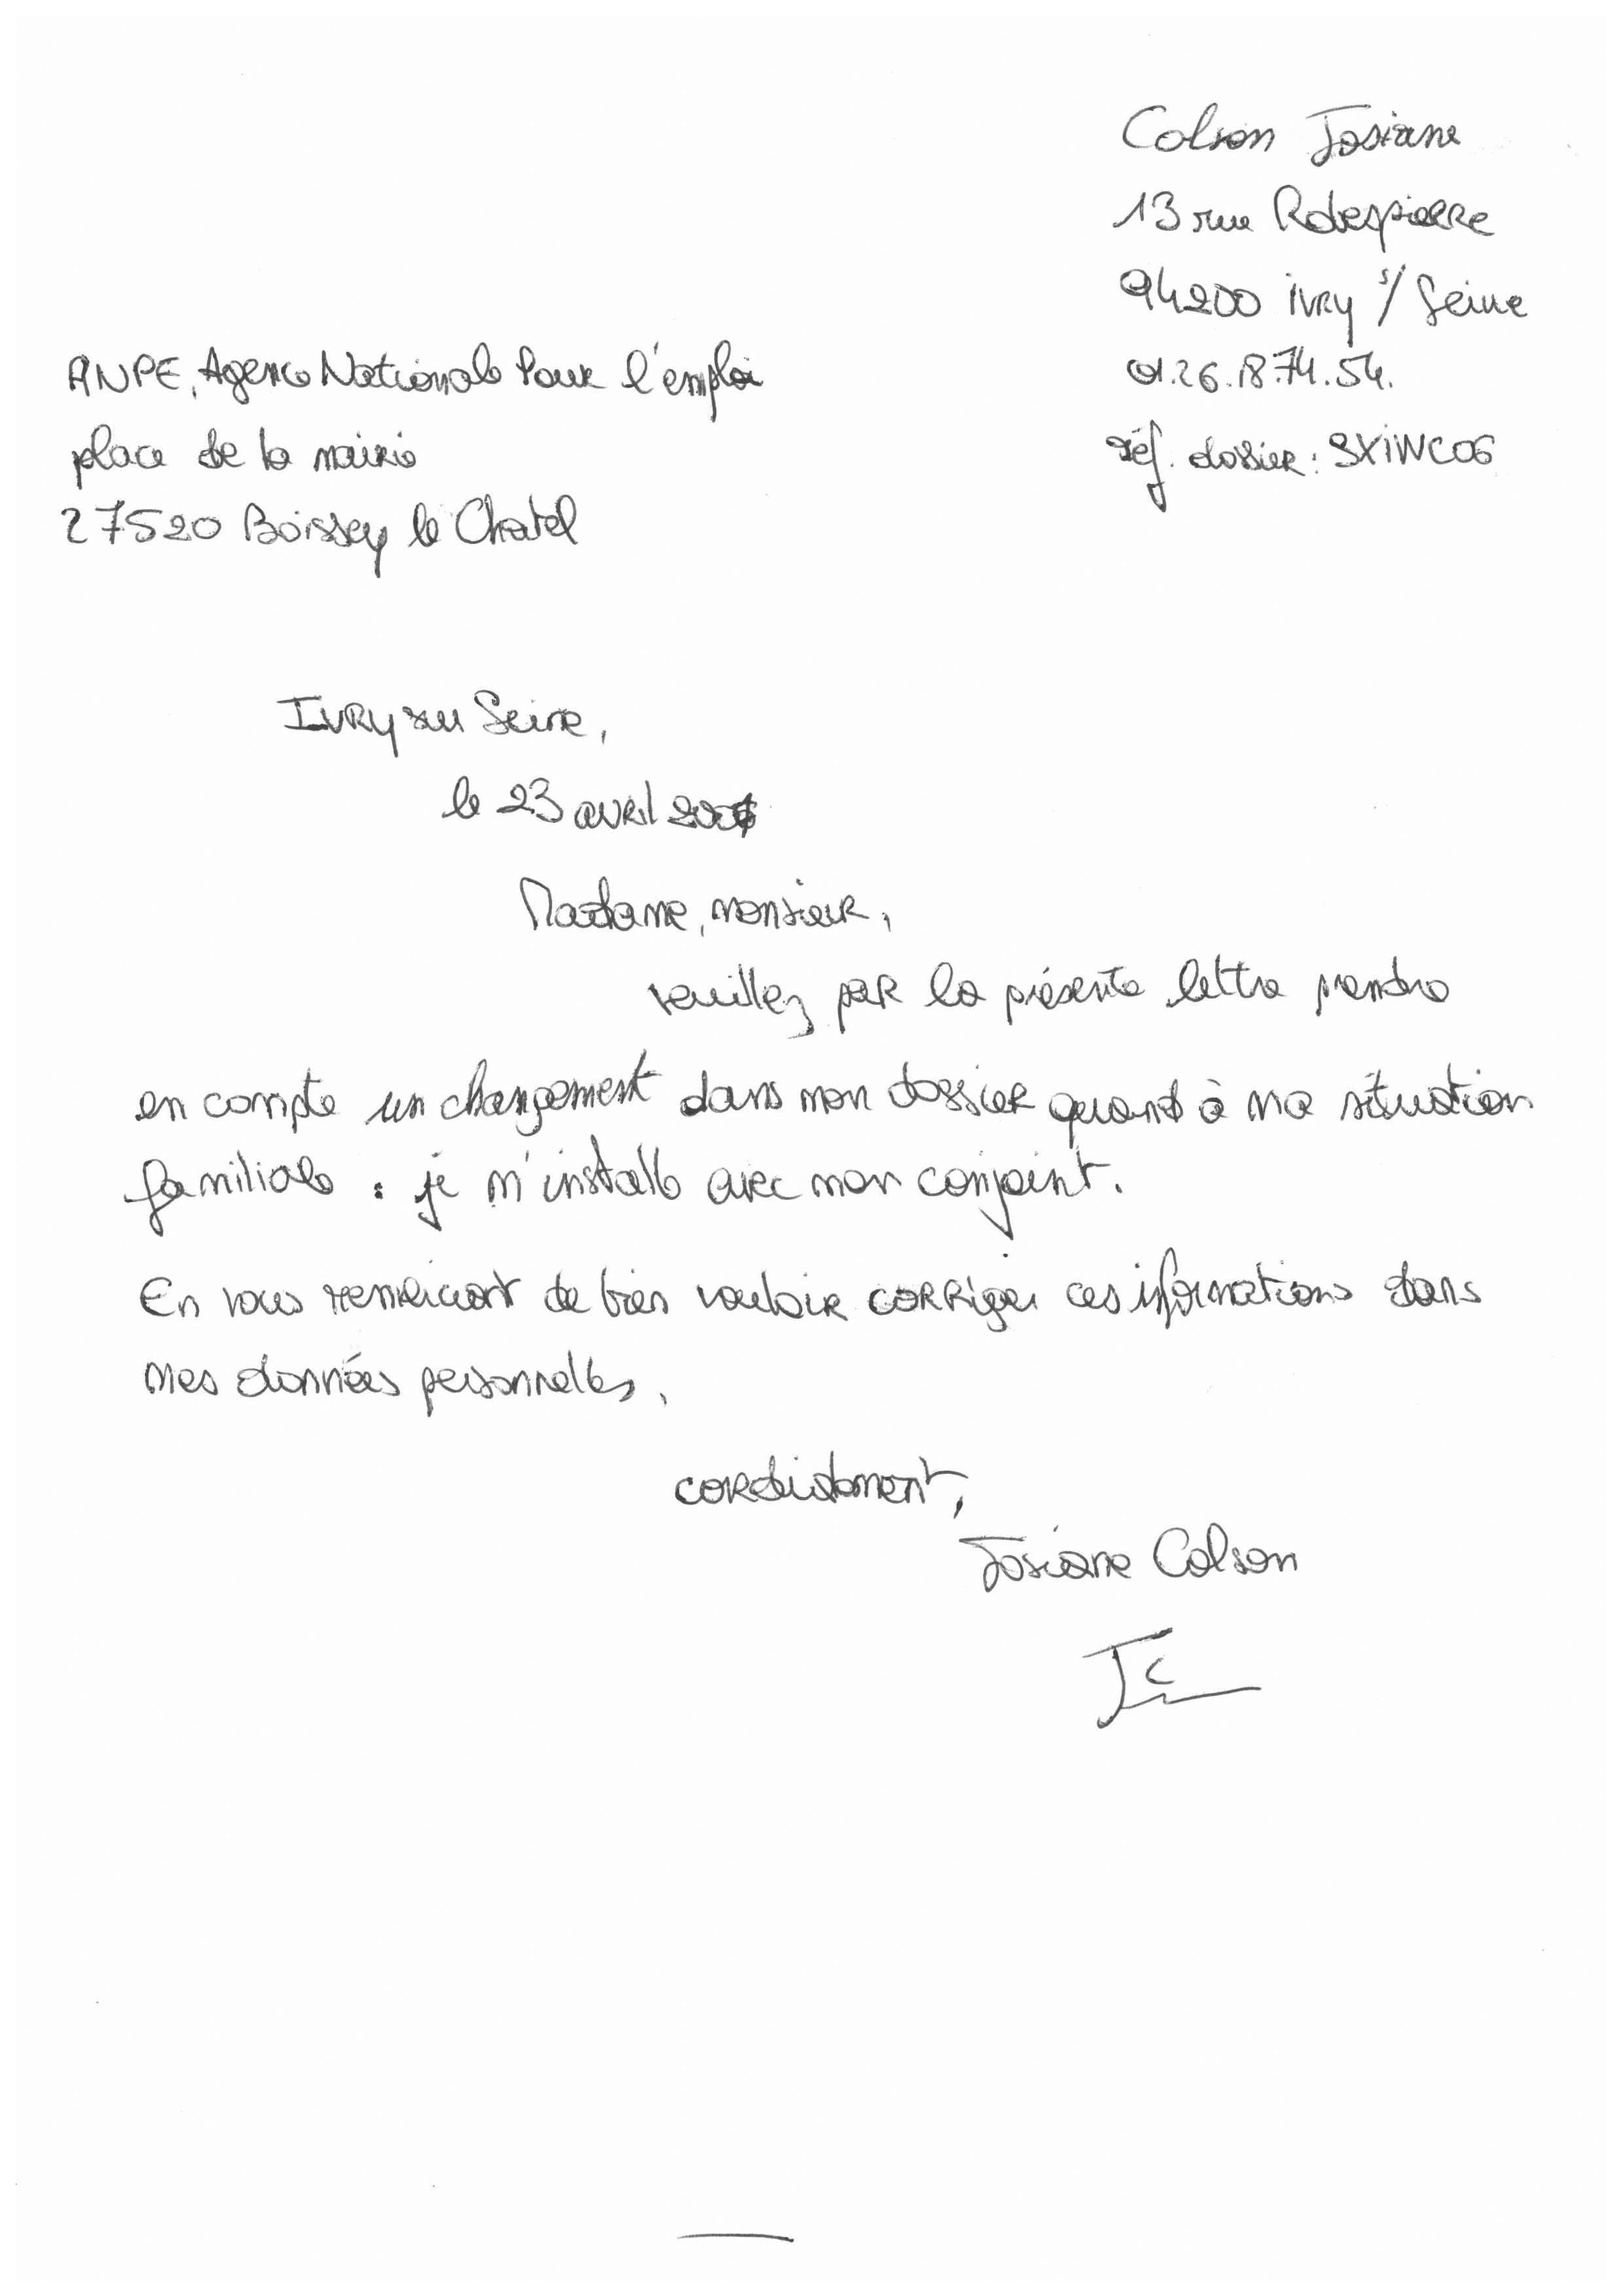 Colson Josiane
13 rue Robespierre
94200 ivry s/ Seine
01.26.18.74.54.
réf. dossier : SXIWC06
ANPE, Agence Nationale Pour l'emploi
place de la mairie
27520 Boissey le Chatel
Ivry sur Seine,
le 23 avril
Madame, monsieur,
veuillez par la présente lettre prendre
en compte un changement dans mon dossier quant à ma situation
familiale : je m'installe avec mon conjoint.
En vous remerciant de bien vouloir corriger ces informations dans
mes données personnelles,
cordialement,
Josiane Colson
JC